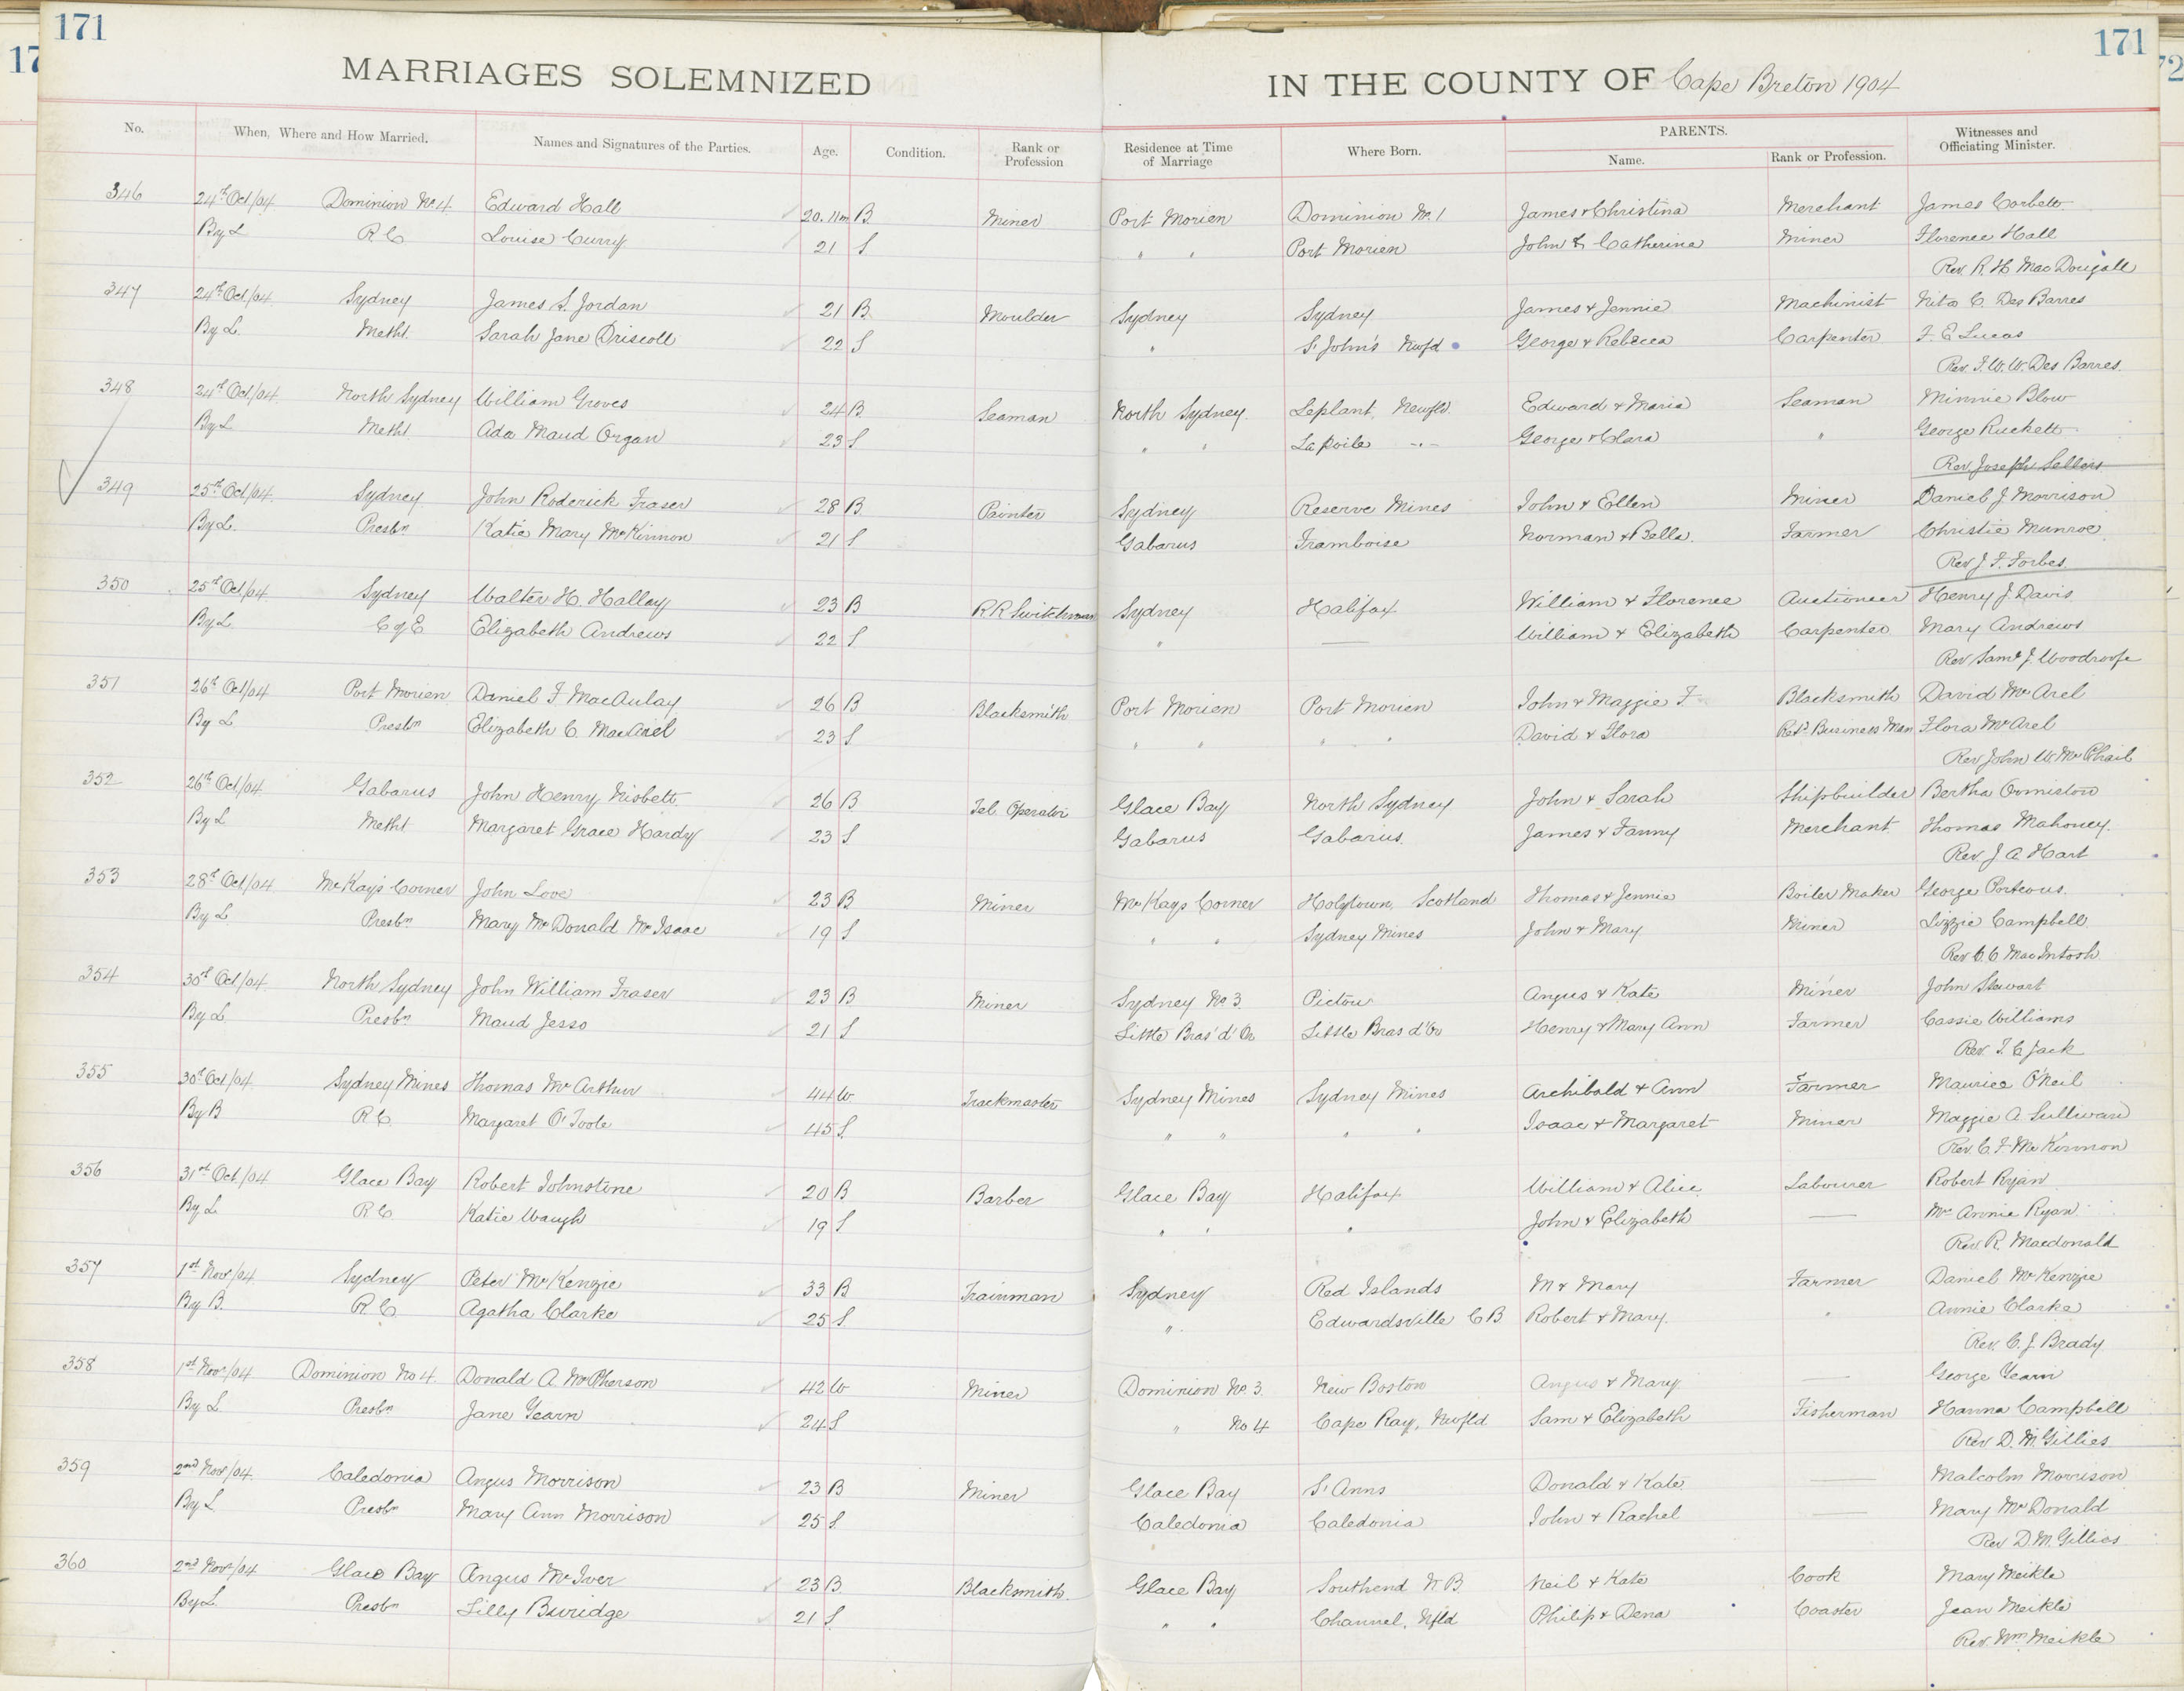 171
171
17
72
MARRIAGES SOLEMNIZED IN THE COUNTY OF Cape Breton 1904
No. When, Where and How Married. Names and Signatures of the Parties. Age. Condition. Rank or Profession Residence at Time of Marriage Where Born. PARENTS. Name. Rank or Profession. Witnesses and Officiating Minister.
346 24th Oct/04 Dominion No 4 Edward Hall 20.11m B Miner Port Morien Dominion No. 1 James & Christina Merchant James Corbett
By L R C Louise Curry 21 S " " Port Morien John & Catherine Miner Florence Hall
Rev R. H MacDougall
347 24th Oct/04 Sydney James S. Jordan 21 B. Moulder Sydney Sydney James & Jennie Machinist Nita C. Des Barres
By L. Metht. Sarah Jane Driscoll 22 S " St John's Nwfd George & Rebecca Carpenter F. E Lucas
Rev. F. W. W. Des Barres.
348 24th Oct/04 North Sydney William Groves 24 B Seaman North Sydney Leplant, Newfld. Edward & Maria Seaman Minnie Blow
By L Metht Ada Maud Organ 23 S " " La Poile -"- George & Clara " George Ruckett
Rev Joseph Sellers
349 25th Oct/04 Sydney John Roderick Fraser 28 B Painter Sydney Reserve Mines John & Ellen Miner Daniel J Morrison
By L. Presbn Katie Mary McKinnon 21 S Gabarus Framboise Norman & Bella Farmer Christie Munroe
Rev J. F. Forbes.
350 25th Oct/04 Sydney Walter H. Halley 23 B R R Switchman Sydney Halifax William & Florence Auctioneer Henry J. Davis
By L. C of E Elizabeth Andrews 22 S " — William & Elizabeth Carpenter Mary Andrews
Rev Saml J. Woodroofe
351 26th Oct/04 Port Morien Daniel F MacAulay 26 B Blacksmith Port Morien Port Morien John & Maggie F Blacksmith David McArel
By L Presbn Elizabeth C. MacAriel 23 S " " " " David & Flora Retd Business Man Flora McArel
Rev John W. McPhail
352 26th Oct/04 Gabarus John Henry Nisbett 26 B Tel Operator Glace Bay North Sydney John & Sarah Shipbuilder Bertha Ormiston
By L Metht Margaret Grace Hardy 23 S Gabarus Gabarus. James & Fanny Merchant Thomas Mahoney.
Rev. J A Hart
353 28th Oct/04 McKay's Corner John Love 23 B Miner McKays Corner Holytown, Scotland Thomas & Jennie Boiler Maker George Porteous.
By L Presbn Mary McDonald McIsaac 19 S " " Sydney Mines John & Mary Miner Lizzie Campbell
Rev C. C MacIntosh
354 30th Oct/04 North Sydney John William Fraser 23 B Miner Sydney No 3. Pictou Angus & Kate Miner John Stewart
By L Presbn Maud Jesso 21 S Little Bras' d' Or Little Bras d'Or Henry & Mary Ann Farmer Cassie Williams
Rev. T. C Jack
355 30th Oct/04 Sydney Mines Thomas McArthur 44 W Trackmaster Sydney Mines Sydney Mines Archibald & Ann Farmer Maurice O'Neil
By B R C. Margaret O'Toole 45 S " " " " Isaac & Margaret Miner Maggie A. Sullivan
Rev. C. F. McKinnon
356 31st Oct./04 Glace Bay Robert Johnstone 20 B Barber Glace Bay Halifax William & Alice Labourer Robert Ryan
By L R C Katie Waugh 19 S " " " John & Elizabeth — Mrs Annie Ryan
Rev R. Macdonald
357 1st Novr/04 Sydney Peter McKenzie 33 B Trainman Sydney Red Islands M & Mary Farmer Daniel McKenzie
By B. R. C Agatha Clarke 25 S " Edwardsville C B Robert & Mary " Annie Clarke
Rev. C. J. Brady
358 1st Novr/04 Dominion No 4. Donald A. McPherson 42 W Miner Dominion No 3. New Boston Angus & Mary — George Yearn
By L. Presbn Jane Yearn 24 S " No 4 Cape Ray, Nwfld Sam & Elizabeth Fisherman Hanna Campbell
Rev D. M. Gillies
359 2nd Novr/04 Caledonia Angus Morrison 23 B Miner Glace Bay St Anns Donald & Kate — Malcolm Morrison
By L Presbn Mary Ann Morrison 25 S Caledonia Caledonia John & Rachel — Mary McDonald
Rev D. M. Gillies
360 2nd Novr/04 Glace Bay Angus McIver 23 B Blacksmith Glace Bay Southend N B. Neil & Kate Cook Mary Meikle
By L. Presbn Lilly Buridge 21 S " " Channel, Nfld Philip & Dena Coaster Jean Meikle
Rev. Wm Meikle